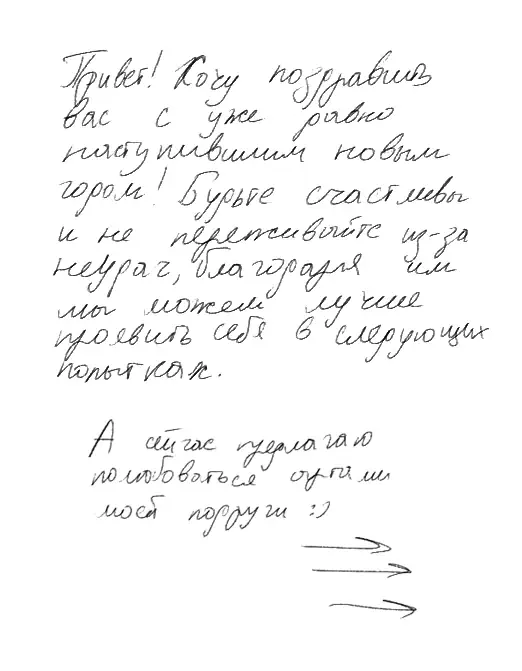 Привет! Хочу поздравить
вас с уже давно
наступившим новым
годом! Будьте счастливы
и не переживайте из-за
неудач, благодаря им
мы можем лучше
проявить себя в следующих
попытках.
А сейчас предлагаю
полюбоваться артами
моей подруги :)